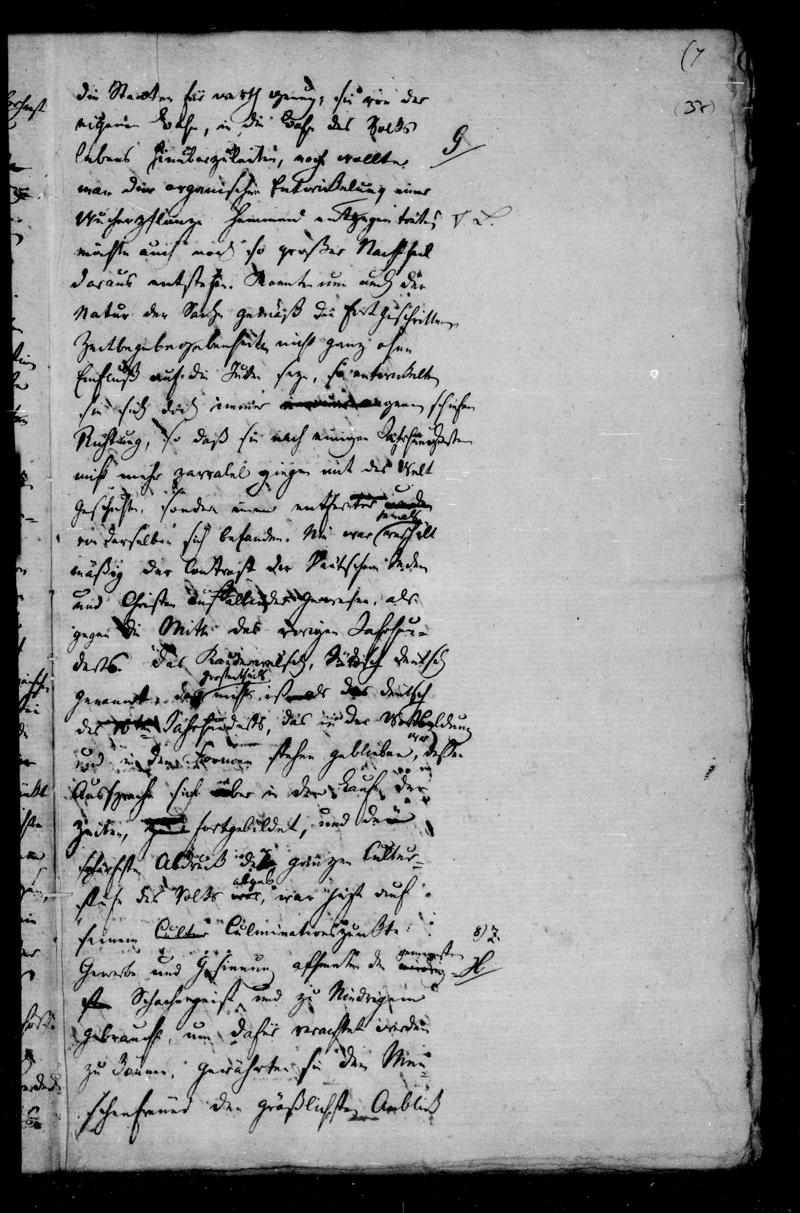 (7
(37)
die Staaten für werth genug, sie von der
eigenen Bahn, in die Bahn des Volks
lebens hinüberzuleiten, noch wollte
G
man der organischen Entwickelung einer
Wucherpflanze hemmend entgegen treten,
möchte auch noch so großer Nachtheil
daraus entstehen. Konnten nun auch der
Natur der Sache gemäß die fortgeschrittenen
nicht ganz ohne
Einfluß auf die Juden seyn, so entwickelten
sie sich doch immer schiefen
Richtung, so daß sie nach einigen Jahrhunderten
nicht mehr parralel giengen mit der Welt
geschichte, sondern immer entfernter
von derselben sich befanden. Nie war verhält
mäßig der Contrast der Deutschen Juden
und Christen auffallender gewesen, als
gegen die Mitte des vorigen Jahrhun-
derts. Das Kauderwelsch, Jüdisch deutsch
genannt, das großentheils nichts ist als das deutsch
des Jahrhunderts, das in der Wortbildung
und in den Formen stehen geblieben war, dessen
Aussprache sich aber in der Laufe der
Zeiten, fortgebildet, und den
schärfsten Abdruck der ganzen Cultur-
stufe des Volks abgab, war jetzt auf
seinem Culminationspunkte.
8) Z.
Gewerbe und Gesinnung athmeten den gemeinsten
H
Schachergeist und zu Niedrigem
gebraucht, um dafür verachtet werden
zu können, gewährten sie dem Men
schenfreund den gräßlichsten Anblick